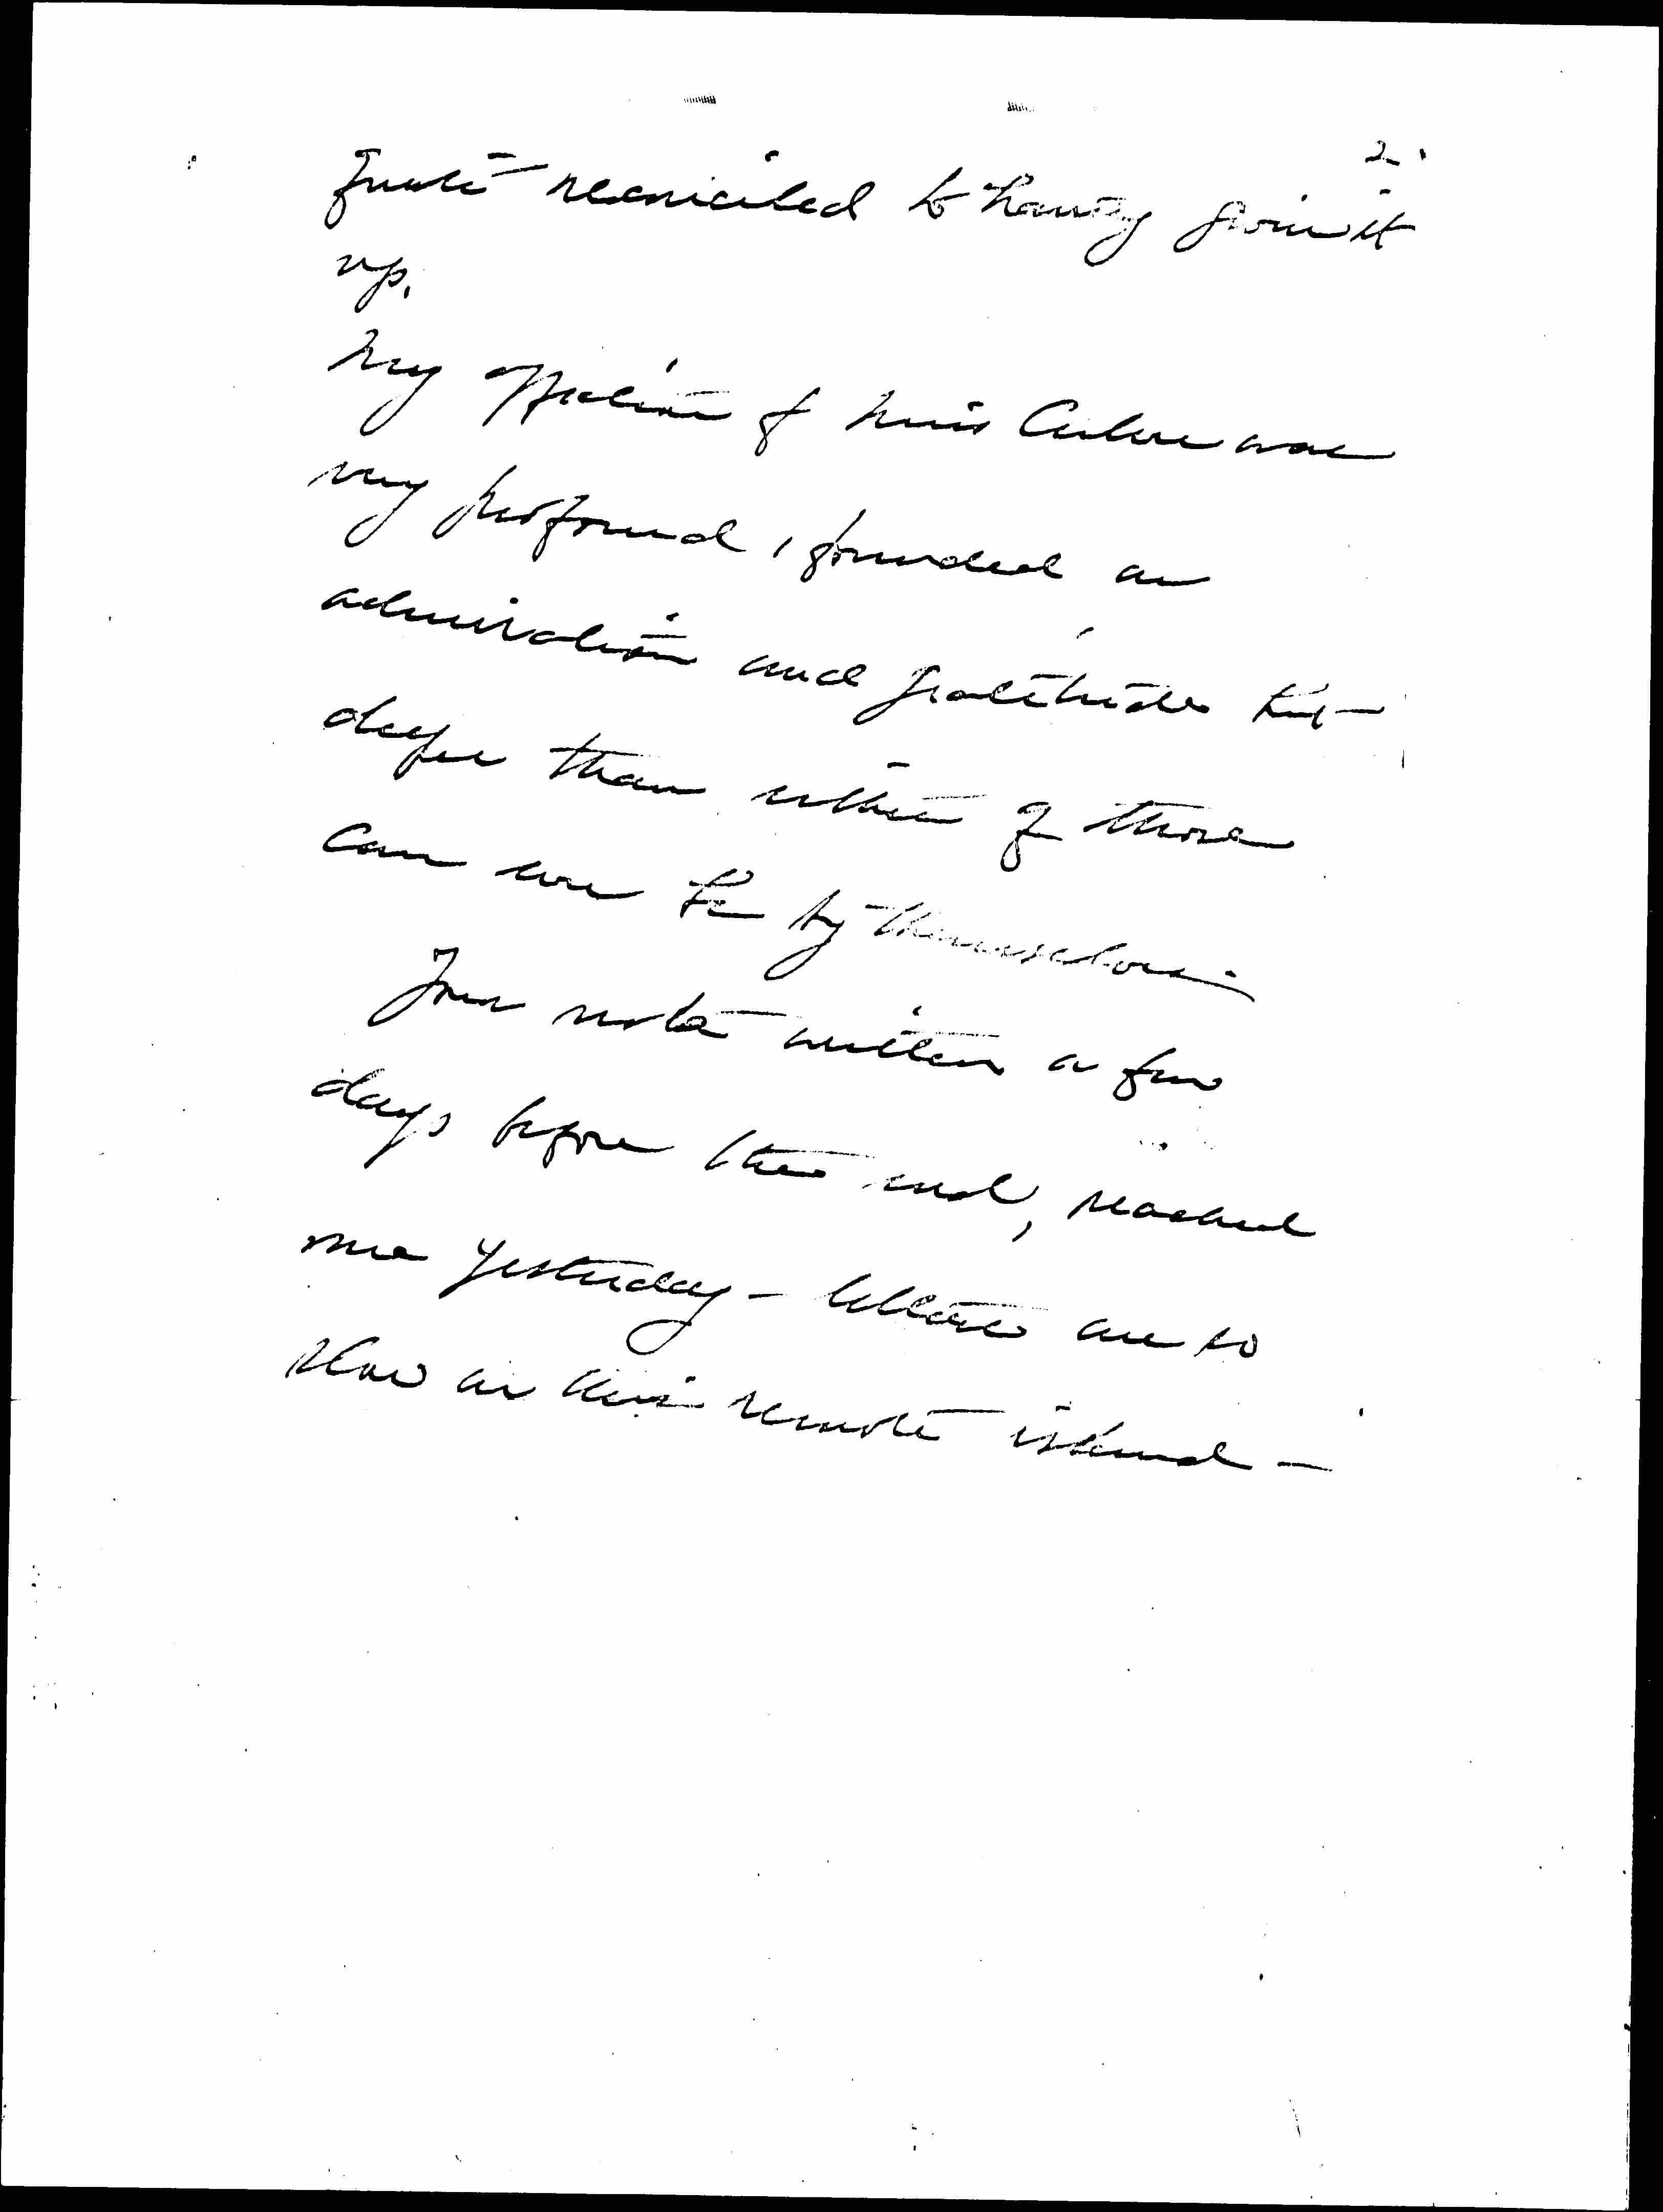 2.
quite reconciled to having given it
up.
My affection for Miss Cutler was
very profound, founded on
admiration and gratitude but
deeper than either of those
can ever be by themselves.
Your note written a few
days before the end, reached
me yesterday – letters are so
slow in this remote island –